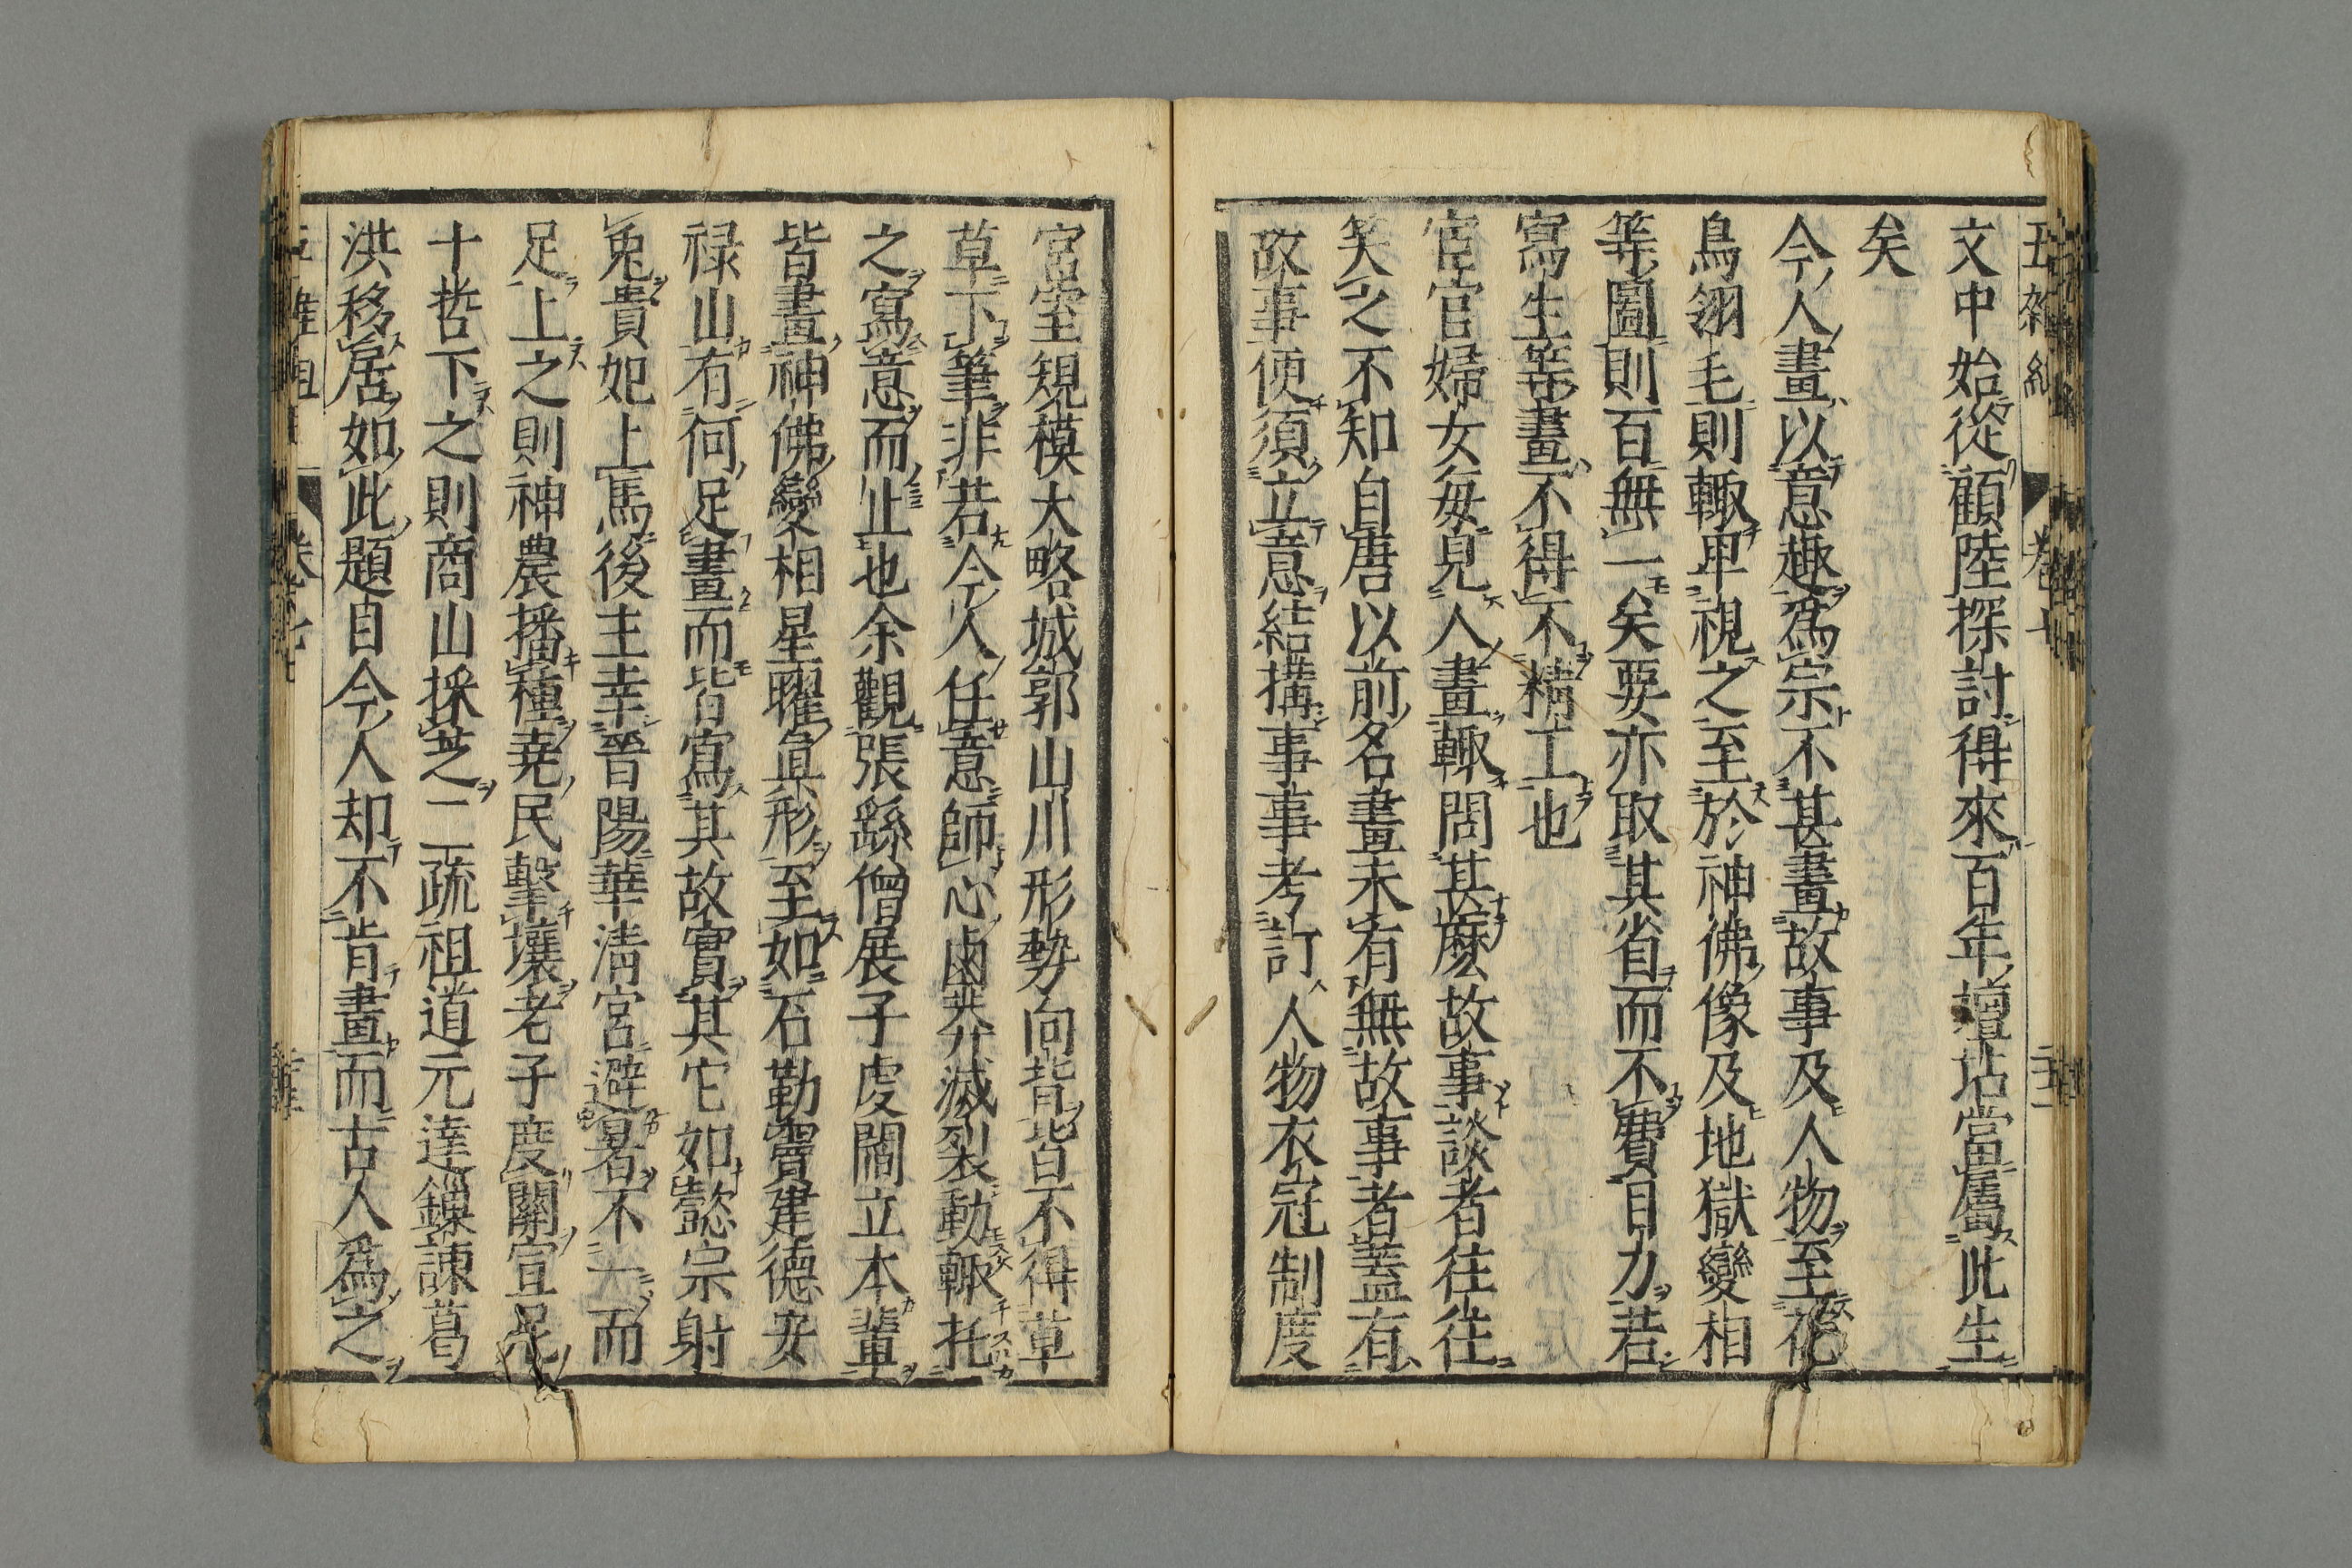 文中始從顧陸探討得來百年壇坫當屬此生
矣
今人畫以意趣爲宗不甚畫故事及人物至花
鳥翎毛則輙卑視之至於神佛像及地獄變相
等圖則百無一矣要亦取其省而不費目力若
寫生等畫不得不精工也
宦官婦女每見人畫輙問甚麽故事談者往往
笑之不知自唐以前名畫未有無故事者蓋有
故事便須立意結搆事事考訂人物衣冠制度
宮室規模大略城郭山川形勢向背皆不得草
草下筆非若今人任意師心鹵莽滅裂動輙托
之寫意而止也余觀張繇僧展子虔閻立本輩
皆畫神佛變相星曜眞形至如石勒竇建德安
禄山有何足畫而皆寫其故實其它如懿宗射
兎貴妃上馬後主幸晉陽華清宮避暑不一而
足上之則神農播種堯民擊壤老子度關宣尼
十哲下之則商山採芝二疏祖道元達鏁諫葛
洪移居如此題自今人却不肯畫而古人爲之